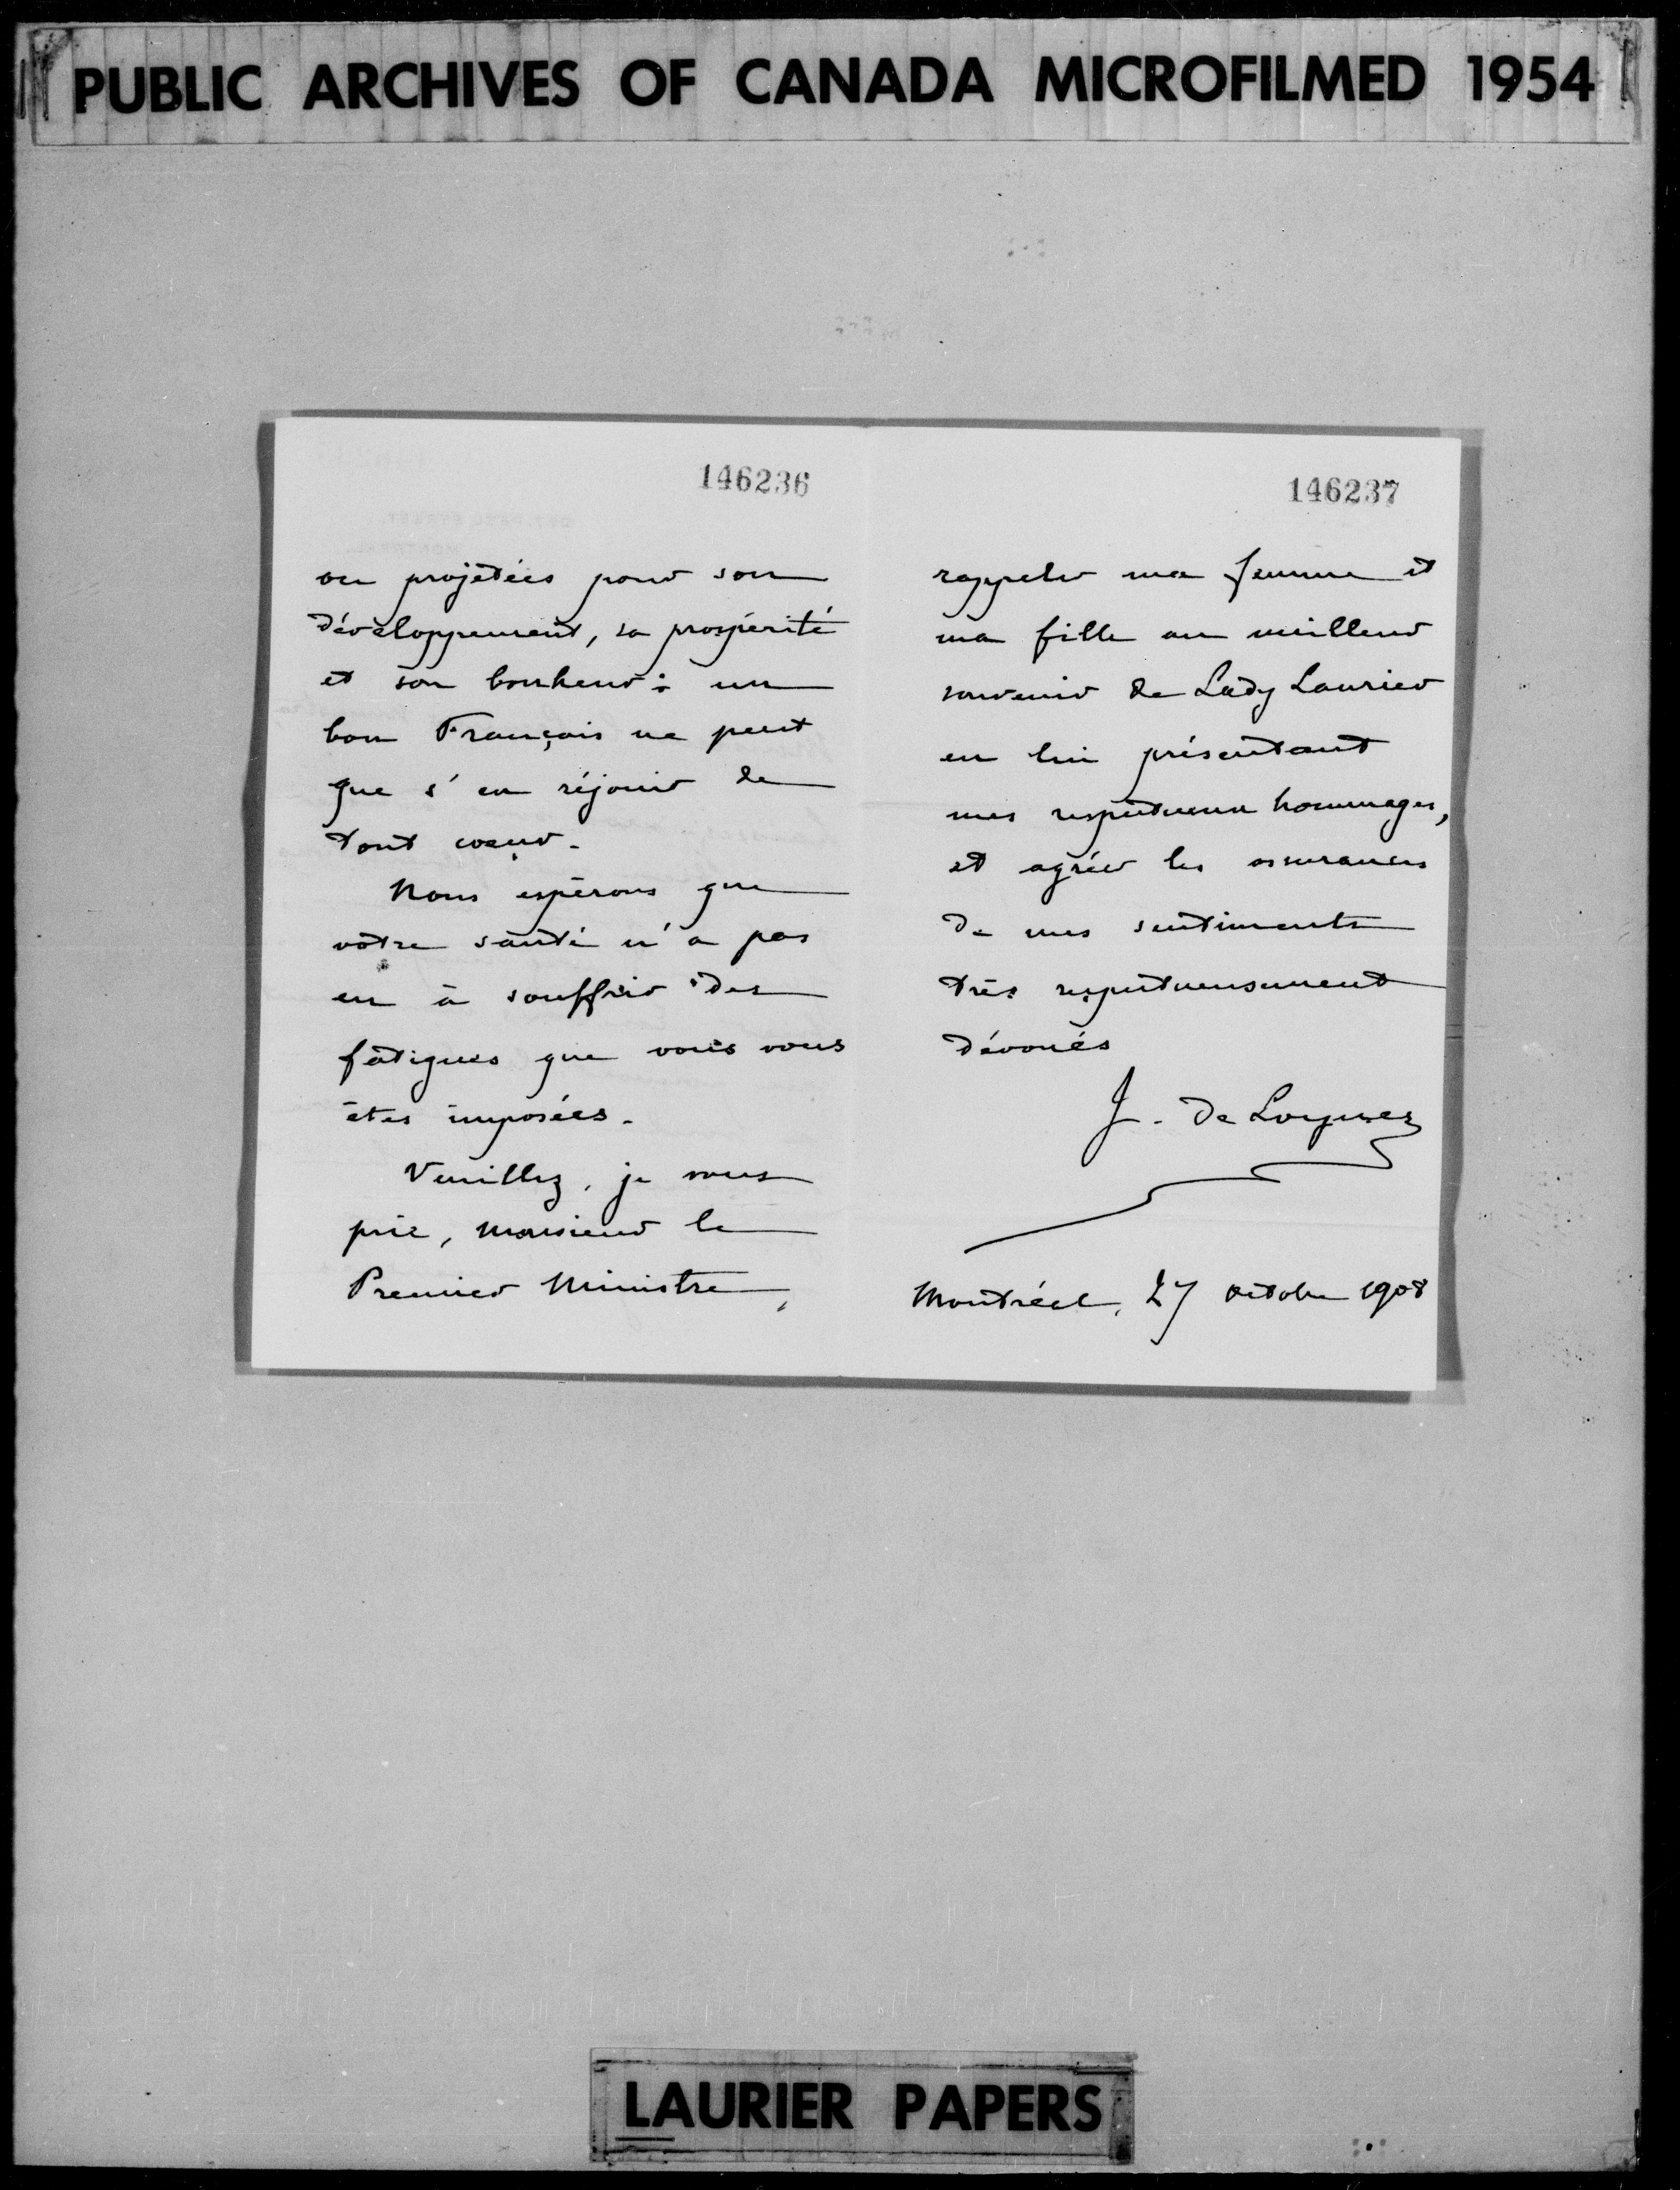 PUBLIC ARCHIVES OF CANADA MICROFILMED 1954
146236
ou projetées pour son
développement, sa prospérité
et son bonheur : un
bon Français ne peut
que s'en réjouir de
tout cœur.
Nous espérons que
votre santé n'a pas
eu à souffrir des
fatigues que vous vous
êtes imposées.
Veuillez, je vous
prie, Monsieur le
Premier Ministre,
146237
rappeler ma femme et
ma fille au meilleur
souvenir de Lady Laurier
en lui présentant
mes respectueux hommages,
et agréer les assurances
de mes sentiments
très respectueusement
dévoués
J. de Loynes
Montréal, 27 octobre 1908
LAURIER PAPERS